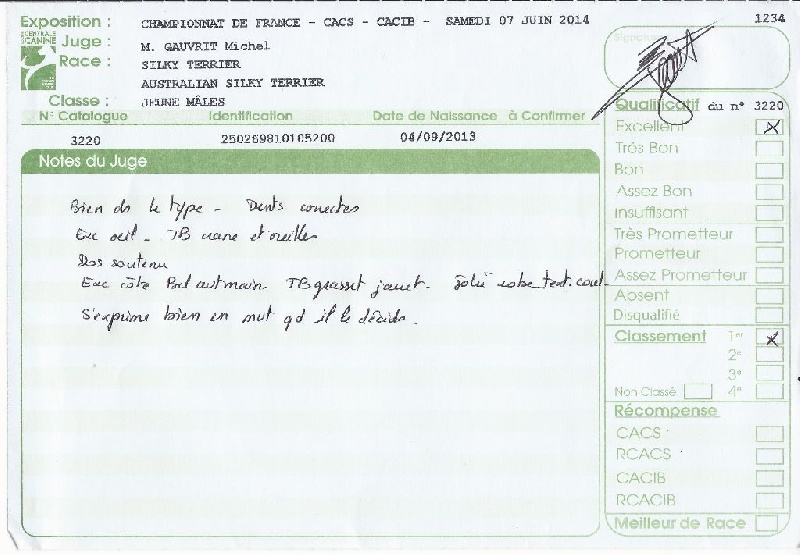 Exposition : CHAMPIONNAT DE FRANCE - CACS - CACIB - SAMEDI 07 JUIN 2014
1234
CENTRALE CANINE
Juge : M. GAUVRIT Michel
Race : SILKY TERRIER
AUSTRALIAN SILKY TERRIER
Classe : JEUNE MÂLES
Signature
N° Catalogue Identification Date de Naissance à Confirmer
3220 250269810105200 04/09/2013
Notes du Juge
Bien ds le type - Dents correctes
Exc oeil - TB crane et oreilles
Dos soutenu
Exc côte TB grasset jarret. Jolie robe text. coul.
S'exprime bien en mvt qd il le décide.
Qualificatif du n° 3220
Excellent X
Très Bon
Bon
Assez Bon
Insuffisant
Très Prometteur
Prometteur
Assez Prometteur
Absent
Disqualifié
Classement 1er X
2e
3e
Non Classé 4e
Récompense
CACS
RCACS
CACIB
RCACIB
Meilleur de Race